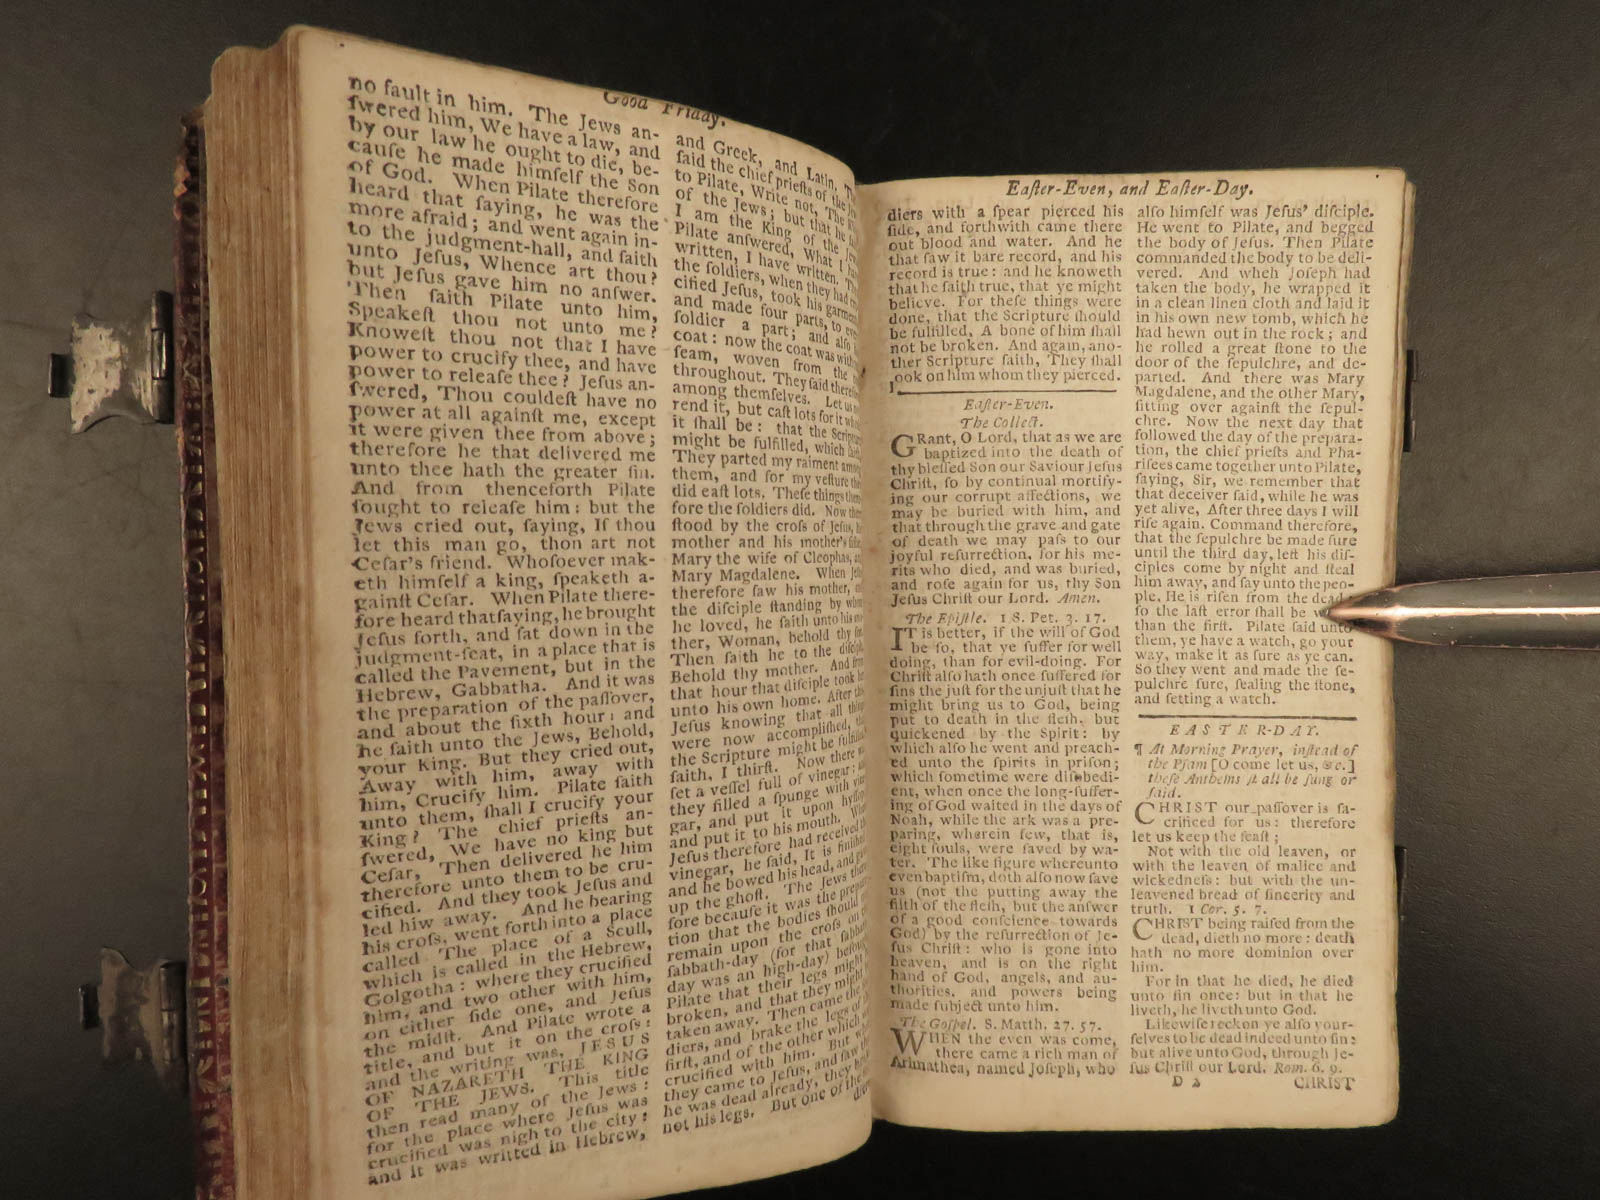 Good Friday.
no fault in him. The Jews an-
ſwered him, We have a law, and
by our law he ought to die, be-
cauſe he made himſelf the Son
of God. When Pilate therefore
heard that ſaying, he was the
more afraid; and went again in-
to the judgment-hall, and ſaith
unto Jeſus, Whence art thou?
but Jeſus gave him no anſwer.
Then ſaith Pilate unto him,
Speakeſt thou not unto me?
Knoweſt thou not that I have
power to crucify thee, and have
power to releaſe thee? Jeſus an-
ſwered, Thou couldeſt have no
power at all againſt me, except
it were given thee from above;
therefore he that delivered me
unto thee hath the greater ſin.
And from thenceforth Pilate
ſought to releaſe him: but the
Jews cried out, ſaying, If thou
let this man go, thon art not
Ceſar's friend. Whoſoever mak-
eth himſelf a king, ſpeaketh a-
gainſt Ceſar. When Pilate there-
fore heard thatſaying, he brought
Jeſus forth, and ſat down in the
judgment-ſeat, in a place that is
called the Pavement, but in the
Hebrew, Gabbatha. And it was
the preparation of the paſſover,
and about the ſixth hour: and
he ſaith unto the Jews, Behold,
your King. But they cried out,
Away with him, away with
him, Crucify him. Pilate ſaith
unto them, ſhall I crucify your
King? The chief prieſts an-
ſwered, We have no king but
Ceſar, Then delivered he him
therefore unto them to be cru-
cified. And they took Jeſus and
led hiw away. And he bearing
his croſs, went forth into a place
called The place of a Scull,
which is called in the Hebrew,
Golgotha: where they crucified
him, and two other with him,
on either ſide one, and Jeſus
the midſt. And Pilate wrote a
title, and put it on the croſs:
and the writing was, JESUS
OF NAZARETH THE KING
OF THE JEWS. This title
then read many of the Jews:
for the place where Jeſus was
crucified was nigh to the city:
and it was writted in Hebrew,
and Greek, and Latin.
ſaid the chief prieſts of the
to Pilate, Write not, The
of the Jews; but that he
I am the King of the
Pilate anſwered, What I
written, I have written.
the ſoldiers, when they had
cified Jeſus, took his
and made four parts, to
ſoldier a part; and alſo
coat: now the coat was
ſeam, woven from the
throughout. They ſaid
among themſelves. Let
rend it, but caſt lots for it
it ſhall be: that the
might be fulfilled, which
They parted my raiment
them, and for my veſture
did eaſt lots. Theſe things
fore the ſoldiers did. Now
ſtood by the croſs of Jeſus,
mother and his mother's
Mary the wife of Cleophas,
Mary Magdalene. When
therefore ſaw his mother,
the diſciple ſtanding by
he loved, he ſaith unto his
ther, Woman, behold thy
Then ſaith he to the
Behold thy mother. And
that hour that diſciple took
unto his own home. After
Jeſus knowing that all
were now accompliſhed,
the Scripture might be
ſaith, I thirſt. Now there
ſet a veſſel full of vinegar:
they filled a ſpunge with
gar, and put it upon
and put it to his mouth.
Jeſus therefore had received
vinegar, he ſaid, It is
and he bowed his head, and
up the ghoſt. The Jews
fore becauſe it was the
tion that the bodies ſhould
remain upon the croſs on
ſabbath-day (for that
day was an high-day)
Pilate that their legs might
broken, and that they might
taken away. Then came the
diers, and brake the legs of
firſt, and of the other which
crucified with him. But
they came to Jeſus, and ſaw
he was dead already, they
not his legs. But one of the
Eaſter-Even, and Eaſter-Day.
diers with a ſpear pierced his
ſide, and forthwith came there
out blood and water. And he
that ſaw it bare record, and his
record is true: and he knoweth
that he ſaith true, that ye might
believe. For theſe things were
done, that the Scripture ſhould
be fulfilled, A bone of him ſhall
not be broken. And again, ano-
ther Scripture ſaith, They ſhall
look on him whom they pierced.
Eaſter-Even.
The Collect.
GRant, O Lord, that as we are
baptized into the death of
thy bleſſed Son our Saviour Jeſus
Chriſt, ſo by continual mortify-
ing our corrupt affections, we
may be buried with him, and
that through the grave and gate
of death we may paſs to our
joyful reſurrection, for his me-
rits who died, and was buried,
and roſe again for us, thy Son
Jeſus Chriſt our Lord. Amen.
The Epiſtle. 1 S. Pet. 3. 17.
IT is better, if the will of God
be ſo, that ye ſuffer for well
doing, than for evil-doing. For
Chriſt alſo hath once ſuffered for
ſins the juſt for the unjuſt that he
might bring us to God, being
put to death in the fleſh, but
quickened by the Spirit: by
which alſo he went and preach-
ed unto the ſpirits in priſon;
which ſometime were diſobedi-
ent, when once the long-ſuffer-
ing of God waited in the days of
Noah, while the ark was a pre-
paring, wherein few, that is,
eight ſouls, were ſaved by wa-
ter. The like figure whereunto
even baptiſm, doth alſo now ſave
us (not the putting away the
filth of the fleſh, but the anſwer
of a good conſcience towards
God) by the reſurrection of Je-
ſus Chriſt: who is gone into
heaven, and is on the right
hand of God, angels, and au-
thorities, and powers being
made ſubject unto him.
The Goſpel. S. Matth. 27. 57.
WHEN the even was come,
there came a rich man of
Arimathea, named Joſeph, who
alſo himſelf was Jeſus' diſciple.
He went to Pilate, and begged
the body of Jeſus. Then Pilate
commanded the body to be deli-
vered. And wheh Joſeph had
taken the body, he wrapped it
in a clean linen cloth and laid it
in his own new tomb, which he
had hewn out in the rock; and
he rolled a great ſtone to the
door of the ſepulchre, and de-
parted. And there was Mary
Magdalene, and the other Mary,
ſitting over againſt the ſepul-
chre. Now the next day that
followed the day of the prepara-
tion, the chief prieſts and Pha-
riſees came together unto Pilate,
ſaying, Sir, we remember that
that deceiver ſaid, while he was
yet alive, After three days I will
riſe again. Command therefore,
that the ſepulchre be made ſure
until the third day, leſt his diſ-
ciples come by night and ſteal
him away, and ſay unto the peo-
ple, He is riſen from the dead:
ſo the laſt error ſhall be
than the firſt. Pilate ſaid unto
them, ye have a watch, go your
way, make it as ſure as ye can.
So they went and made the ſe-
pulchre ſure, ſealing the ſtone,
and ſetting a watch.
EASTER-DAY.
¶ At Morning Prayer, inſtead of
the Pſam [O come let us, &c.]
theſe Anthems ſhall be ſung or
ſaid.
CHRIST our paſſover is ſa-
crificed for us: therefore
let us keep the feaſt;
Not with the old leaven, or
with the leaven of malice and
wickedneſs: but with the un-
leavened bread of ſincerity and
truth. 1 Cor. 5. 7.
CHRIST being raiſed from the
dead, dieth no more: death
hath no more dominion over
him.
For in that he died, he died
unto ſin once: but in that he
liveth, he liveth unto God.
Likewiſe reckon ye alſo your-
ſelves to be dead indeed unto ſin:
but alive unto God, through Je-
ſus Chriſt our Lord. Rom. 6. 9.
D 2 CHRIST